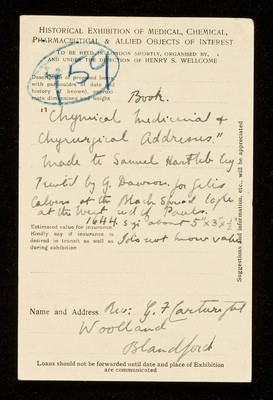 HISTORICAL EXHIBITION OF MEDICAL, CHEMICAL,
PHARMACEUTICAL & ALLIED OBJECTS OF INTEREST
TO BE HELD IN LONDON SHORTLY, ORGANISED BY,
AND UNDER THE DIRECTION OF HENRY S. WELLCOME
459
Description of proposed loan
with particulars of date and
history (if known), approxi-
mate dimensions and weight
Book.
"Chymical Medicinal &
Chyrurgical Addresses."
Made to Samuel Hartlib Esq
Printed by G. Dawson for Giles
Calvert at the Black Spread Eagle
at the West end of Pauls.
1644. size about 5" x 3" x ½"
Estimated value for insurance
Kindly say if insurance is
desired in transit as well as
during exhibition
I do not know value
Suggestions and information, etc., will be appreciated
Name and Address Rev: G F Cartwright
Woolland
Blandford
Loans should not be forwarded until date and place of Exhibition
are communicated